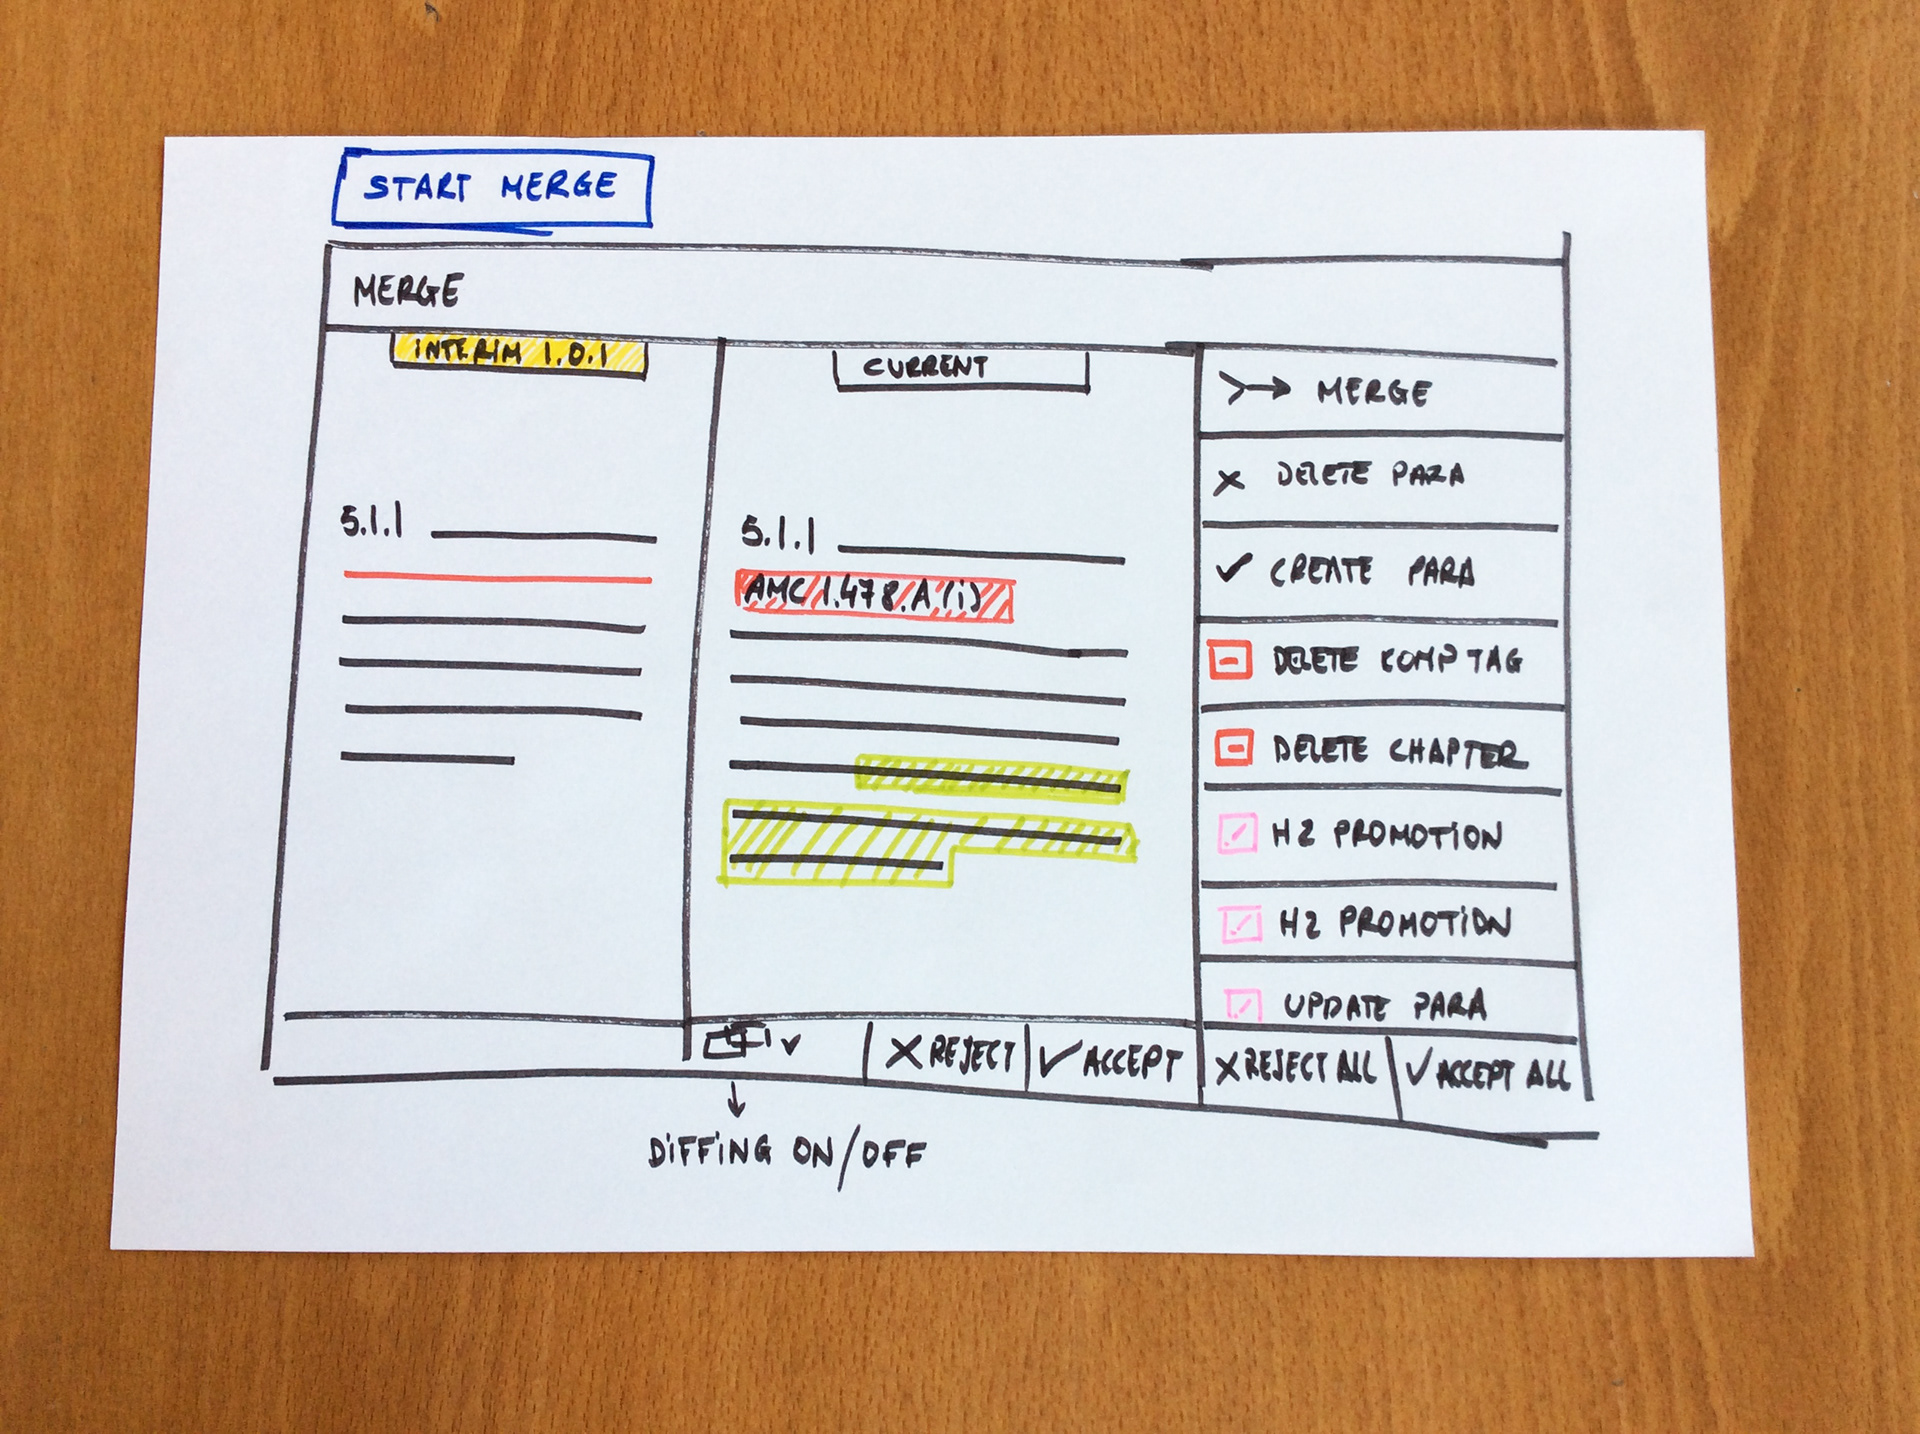 START MERGE
MERGE
INTERIM 1.0.1
5.1.1
CURRENT
5.1.1
AMC 1.478.A(i)
MERGE
DELETE PARA
CREATE PARA
DELETE COMP TAG
DELETE CHAPTER
H2 PROMOTION
H2 PROMOTION
UPDATE PARA
REJECT
ACCEPT
REJECT ALL
ACCEPT ALL
DIFFING ON/OFF